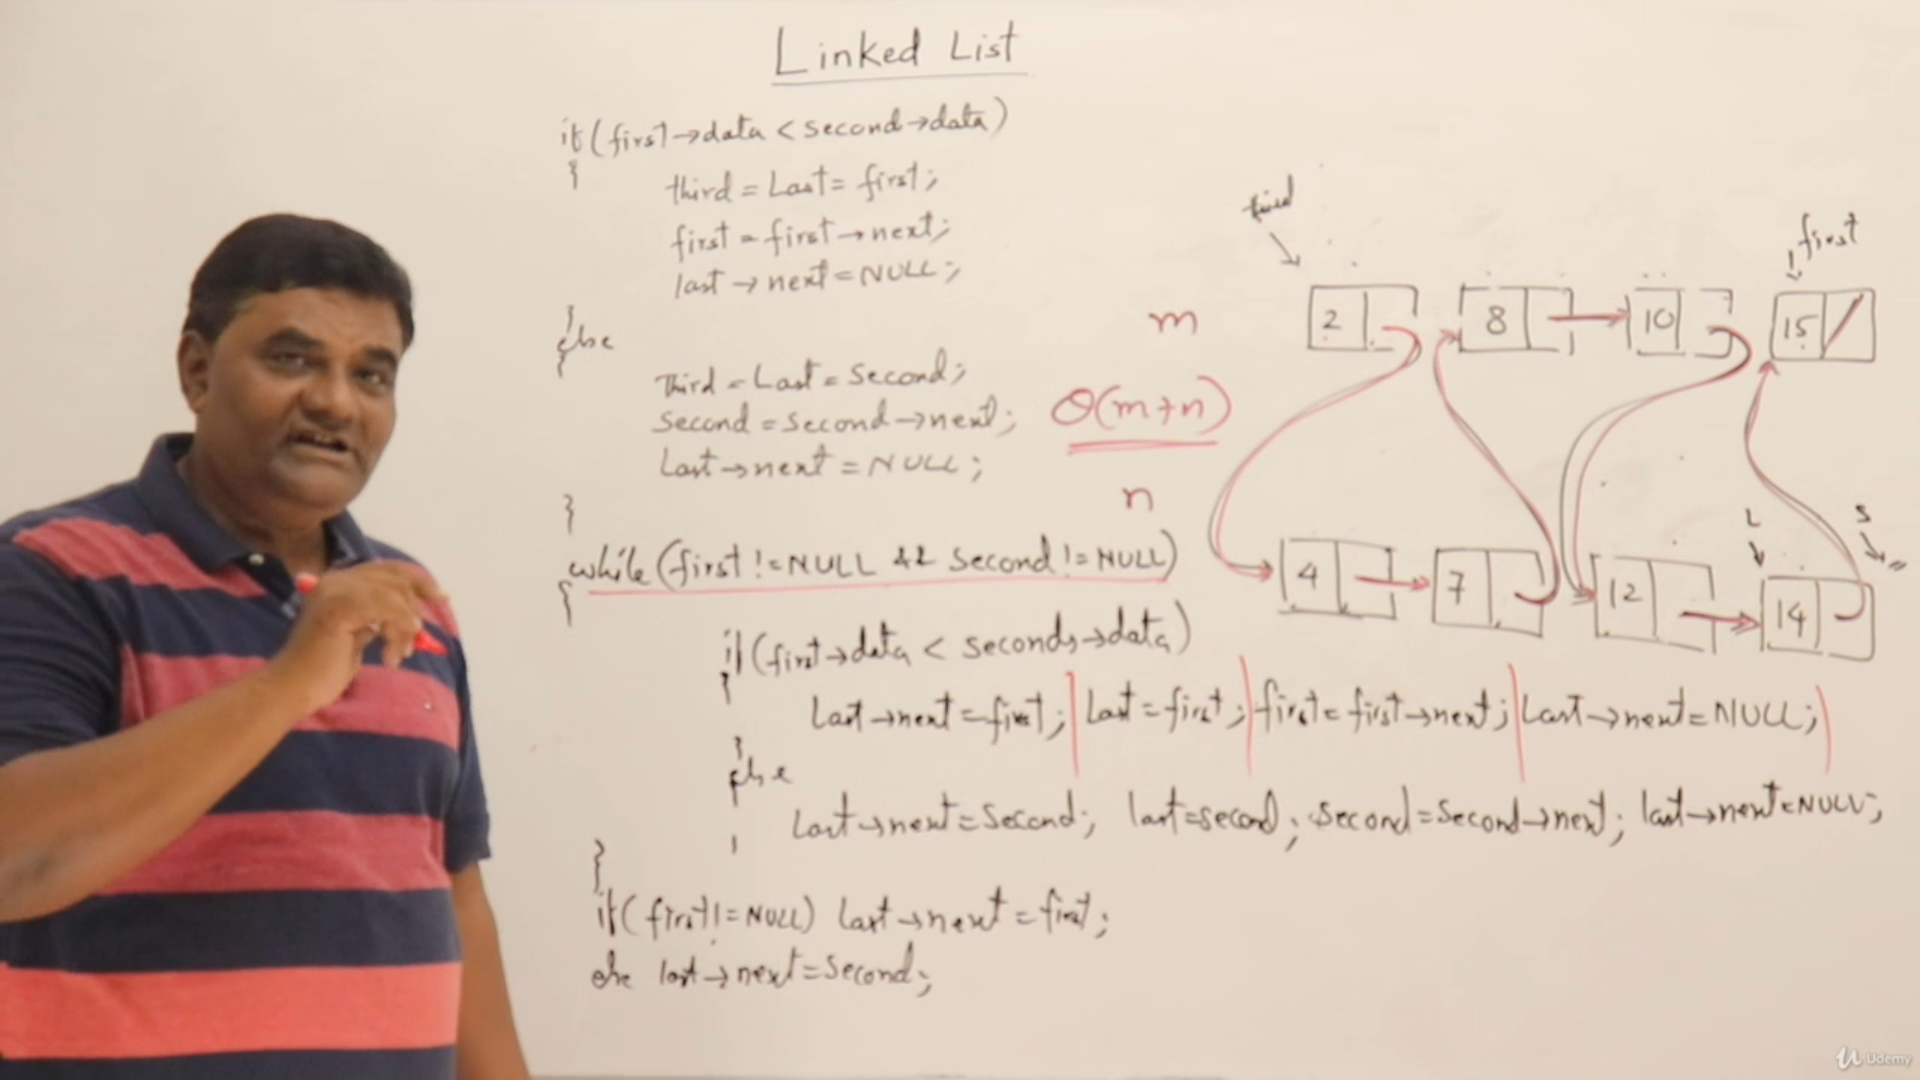 Linked List
if(first→data < second→data)
{
third = Last = first;
first = first→next;
last → next = NULL;
}
else
{
Third = Last = Second;
Second = Second→next;
Last→next = NULL;
}
while(first != NULL && Second != NULL)
{
if(first→data < second→data)
{
Last→next = first; Last = first; first = first→next; Last→next = NULL;
}
else
{
Last→next = Second; last = second; second = Second→next; last→next = NULL;
}
}
if(first != NULL) last→next = first;
else last→next = Second;
m
θ(m+n)
n
third
first
2 8 10 15
L S
4 7 12 14
Udemy